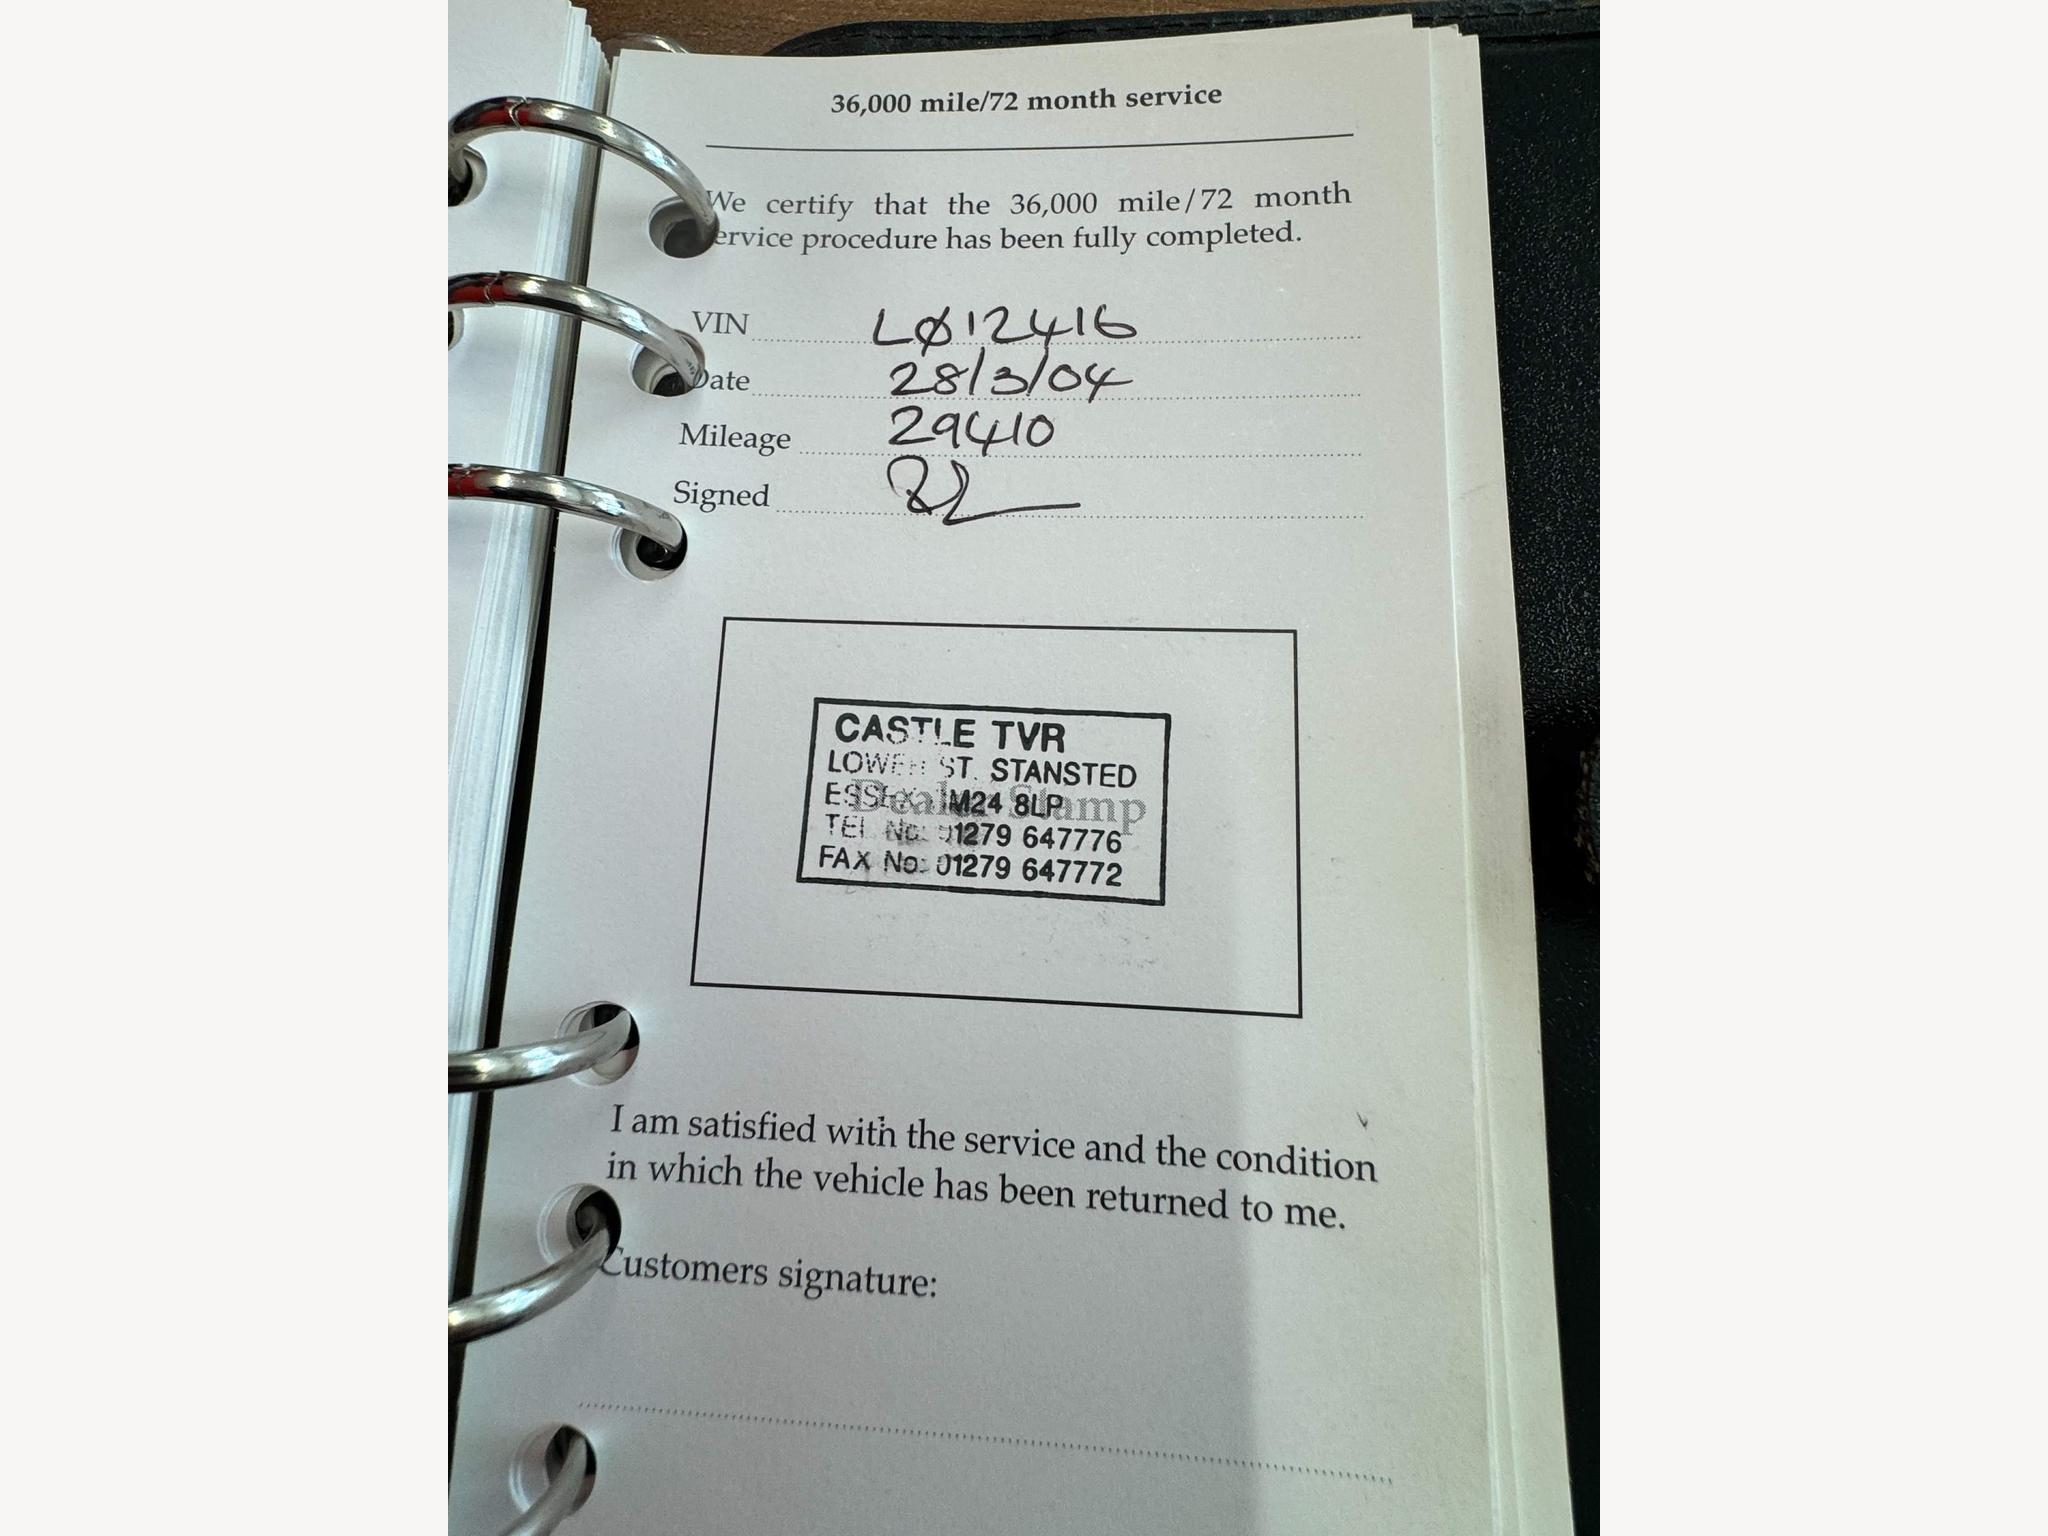 36,000 mile/72 month service
We certify that the 36,000 mile/72 month
ervice procedure has been fully completed.
VIN LØ12416
Date 28/3/04
Mileage 29410
Signed
CASTLE TVR
LOWER ST. STANSTED
ESSEX M24 8LP
Dealer Stamp
TEL No: 01279 647776
FAX No: 01279 647772
I am satisfied with the service and the condition
in which the vehicle has been returned to me.
Customers signature: